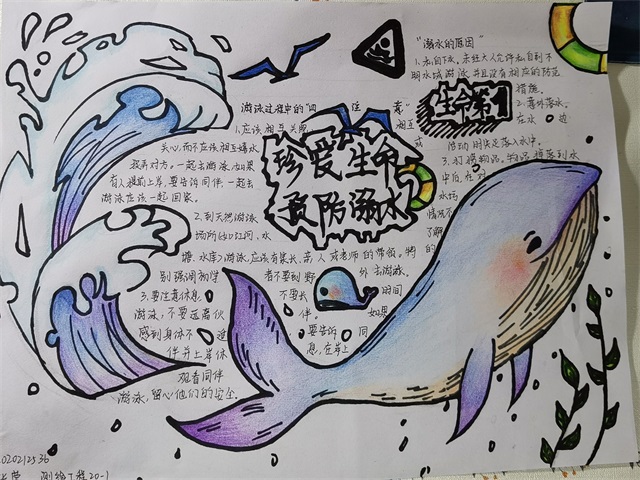 珍爱生命
预防溺水
生命第1
"溺水的原因"
1.私自下水,未经大人允许私自到不
明水域游泳,并且没有相应的防范
措施
2.意外落水。
在水
活动时失足落入水中。
3.打捞物品,物品掉落到水
中后,在对
水坊
情况不
了解
的
游泳过程中的"四 注 意"
1.应该相互关照 相互
关心,而不应该相互嬉水
投弄对方,一起去游泳,如果
有人提前上岸,要告诉同伴,一起去
游泳应该一起回家。
2.到天然游泳
场所(如江河、水
塘、水库)游泳,应该有家长、亲人或老师的带领。特
别强调初学 者不要到野 外去游泳。
3.要注意休息, 不要长 时间
游泳,不要远离伙 伴。 如果
感到身体不适 要告诉 同
伴并上岸休 息,在岸上
观看同伴
游泳,留心他们的安全.
测绘工程20-1